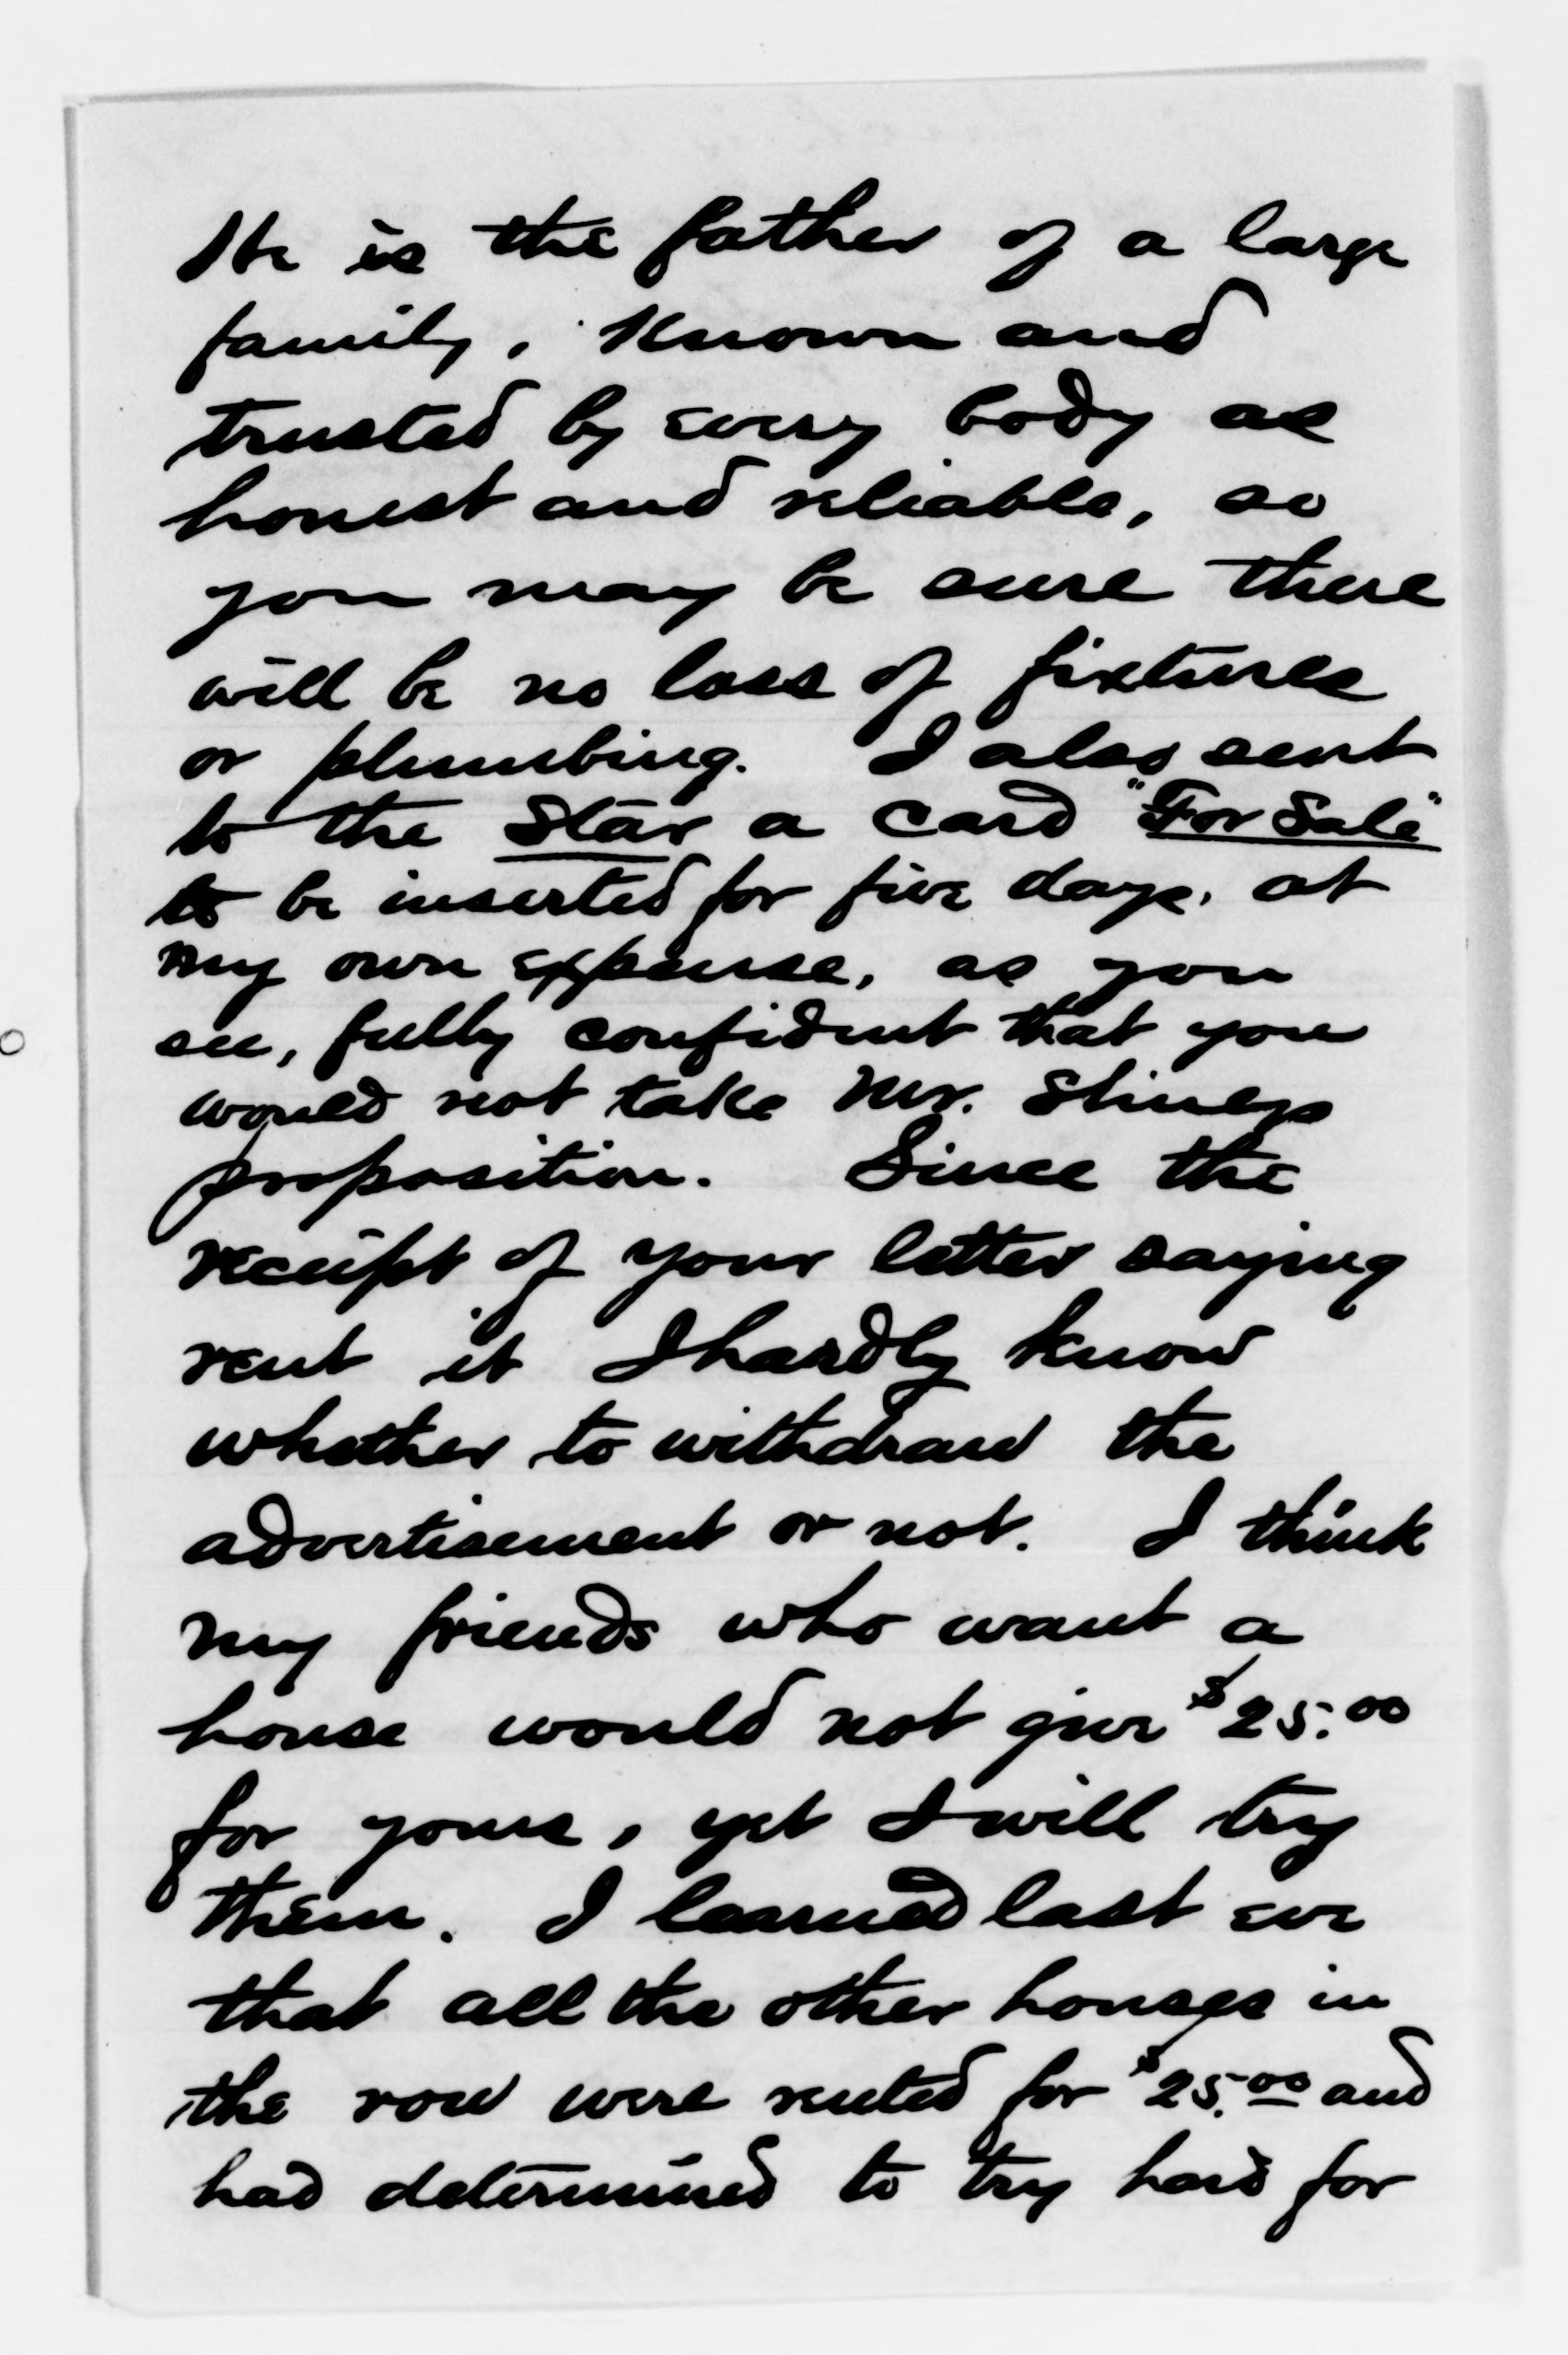 He is the father of a large
family, known and
trusted by every body as
honest and reliable, so
you may be sure there
will be no loss of fixtures
or plumbing. I also sent
to the Star a card "For Sale"
to be inserted for five days, at
my own expense, as you
see, fully confident that you
would not take Mr.
proposition. Since the
receipt of your letter saying
rent it I hardly know
whether to withdraw the
advertisement or not. I think
my friends who want a
house would not give $25.00
for yours, yet I will try
them. I learned last eve
that all the other houses in
the row were rented for $25.00 and
had determined to try hard for